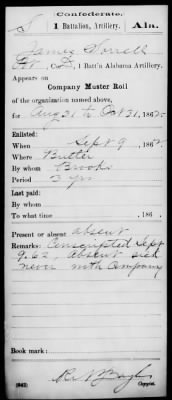 Confederate.
S 1 Battalion, Artillery. Ala.
James Sorrell
Pvt, Co. D, 1 Batt'n Alabama Artillery.
Appears on
Company Muster Roll
of the organization named above,
for Aug 31 to Oct 31, 1862.
Enlisted:
When Sept 9, 1862
Where Butler
By whom Brooks
Period 3 yrs
Last paid:
By whom
To what time , 186 .
Present or absent absent
Remarks: Conscripted Sept
9.62, Absent sick
never with Company
Book mark:
(642) Copyist.